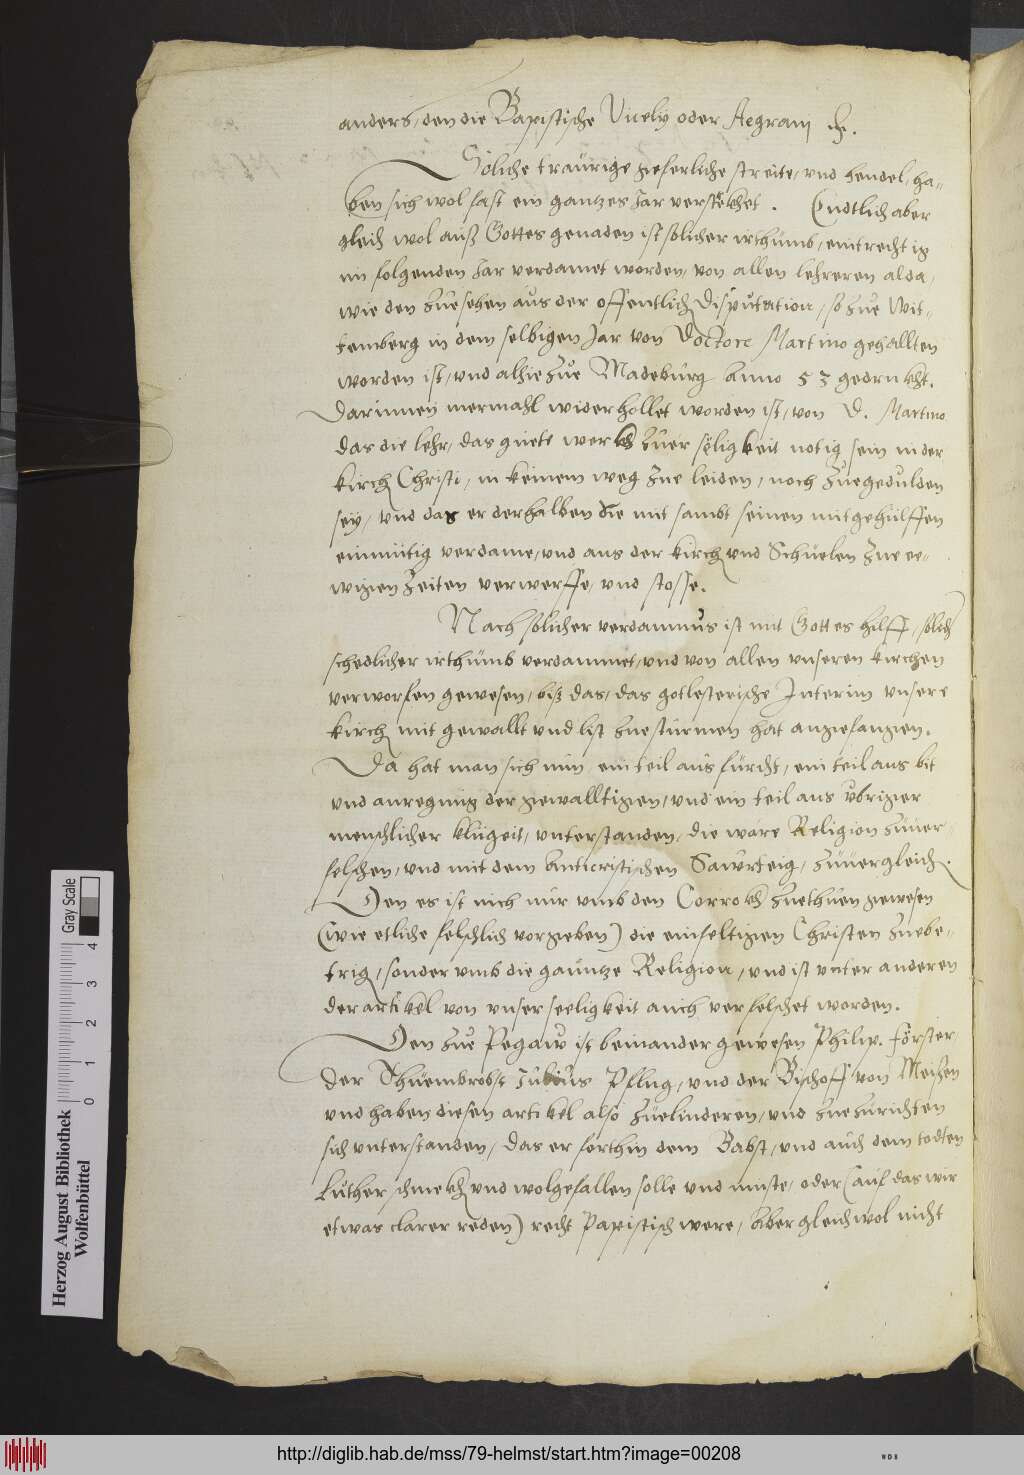 anders, den die Papistische Vicely oder Aegram ꝛc.
Soliche traurige geferliche streite, vnd hendel, ha-
ben sich wol fast ein gantzes Jar verstrekhet. Endtlich aber
gleich wol auß Gottes genaden ist solicher irthumb, eintrechtig
im folgenden Jar verdamet worden, von allen lehreren alda,
wie den zuesehen aus der offentlich Disputation, so zue Wit-
temberg in dem selbigen Jar von Doctore Martino gehallten
worden ist, vnd alhie zue Madeburg Anno 53 gedrukht.
Darinnen mermahl widerhollet worden ist, von D. Martino
das die lehr, das guete werkh zuer seligkeit notig sein in der
kirch Christi, in keinem weg zue leiden, noch zuegedulden
sey, vnd das er derhalben die mit sambt seinen mitgehülffen
einmütig verdame, vnd aus der kirch vnd Schuelen zue ee-
wigen zeiten verwerffe, vnd stosse.
Nach solicher verdamnus ist mit Gottes hilff, solich
schedlicher irthumb verdammet, vnd von allen vnseren kirchen
verworfen gewesen, biß das, das gotlesterische Interim vnsere
kirch mit gewallt vnd list zuestürmen hat angefangen.
Da hat man sich nun ein teil aus fürcht, ein teil aus bit
vnd anregung der gewalltigen, vnd ein teil aus vbriger
menschlicher klugeit, vnterstanden, die ware Religion zuuer-
felschen, vnd mit dem Anticristischen Sawrteig, zuuergleich.
Den es ist nich nur vmb den Corrokh zuethuen gewesen
(wie etliche felschlich vorgieben) die einfeltigen Christen zuebe-
trig, sonder vmb die gauntze Religion, vnd ist vnter anderen
der artikel von vnser seeligkeit auch verfelschet worden.
Den zue Pegaw ist beinander gewesen Philip. Förster,
der Thuembrobst Julius Pflug, vnd der Bischoff von Meißen
vnd haben diesen artikel also zuelinderen, vnd zuezurichten
sich vnterstanden, das er forthin dem Babst, vnd auch dem todten
Luther schmekh vnd wolgefallen solle vnd muste, oder (auf das wir
etwas clarer reden) recht Papistisch were, Aber gleich wol nicht
Herzog August Bibliothek
Wolfenbüttel
0 1 2 3 4
Gray Scale
http://diglib.hab.de/mss/79-helmst/start.htm?image=00208